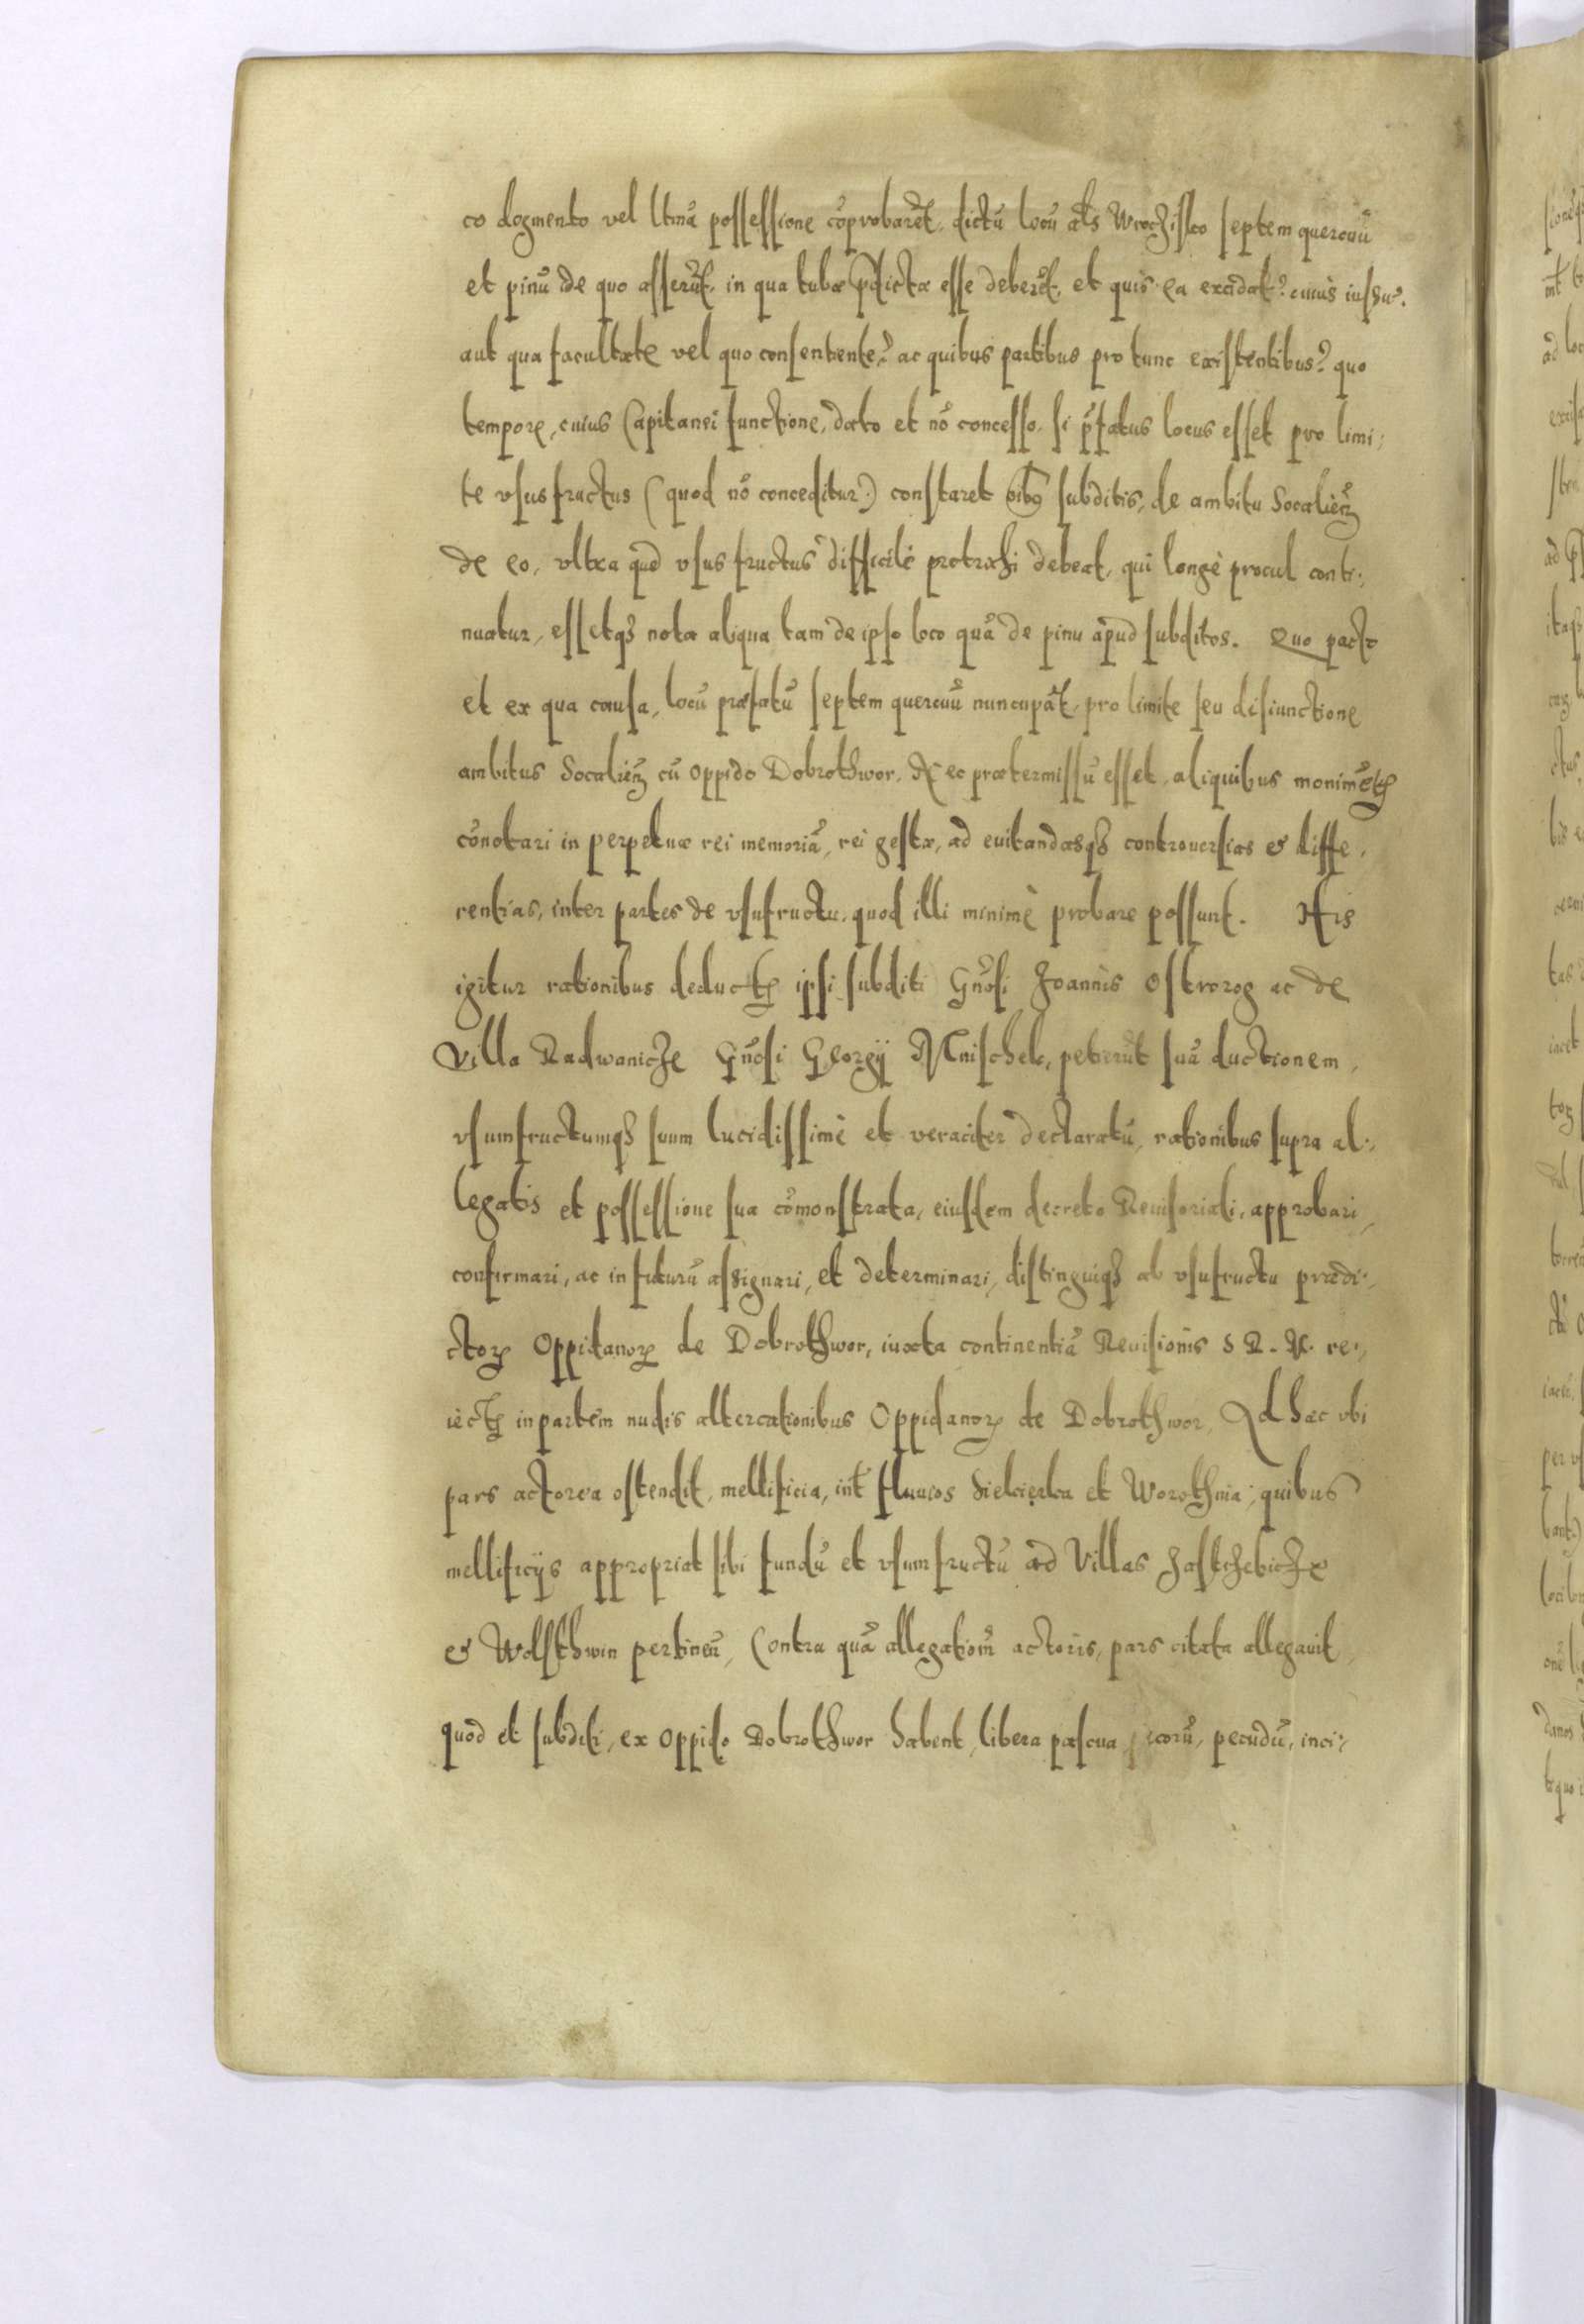 co dogmento vel ltimã possessione cõprobarẽt, dictũ locũ als Wroczisko septem quercuũ
et pinũ de quo asserũt, in qua tubæ p̃dictæ esse deberẽt, et quis ea excidat? cuius iussu?
aut qua facultate vel quo consentente? ac quibus partibus pro tunc existentibus? quo
tempore, cuius Capitanei functione, dato et nõ concesso, si p̃fatus locus esset pro limi:
te vsusfructus (quod nõ conceditur) constaret oĩbꝫ subditis, de ambitu Socalieñ
de eo, vltra quẽ vsus fructus difficilè protrahi debeat, qui longè procul conti:
nuatur, essetqꝫ nota aliqua tam de ipso loco quã de pinu apud subditos. Quo pacto
et ex qua causa, locũ præfatũ septem quercuũ nuncupãt, pro limite seu disiunctione
ambitus Socalieñ cũ oppido Dobrothwor, Nec prætermissũ esset, aliquibus monimẽtis
cõnotari in perpetuæ rei memoriã, rei gestæ, ad euitandasqꝫ controuersias & diffe:
rentias, inter partes de vsufructu, quod illi minimè probare possunt. His
igitur rationibus deductis ipsi subditi Gñosi Joannis Ostrorog ac de
Villa Radwanicze Gñosi Georgÿ Mnischek, petierũt suã ductionem,
vsumfructumqꝫ suum lucidissimè et veraciter declaratũ, rationibus supra al:
legatis et possessione sua cõmonstrata, eiusdem decreto Reuisoriali, approbari,
confirmari, ac in futurũ assignari, et determinari, distinguiqꝫ ab vsufructu prædi:
ctoꝝ Oppidanoꝝ de Dobrothwor, iuxta continentiã Reuisionis S R. M. re:
iectis in partem nudis altercationibus Oppidanoꝝ de Dobrothwor, Ad hæc vbi
pars actorea ostendit, mellificia, int̃ fluuios Sielcierka et Worothnia, quibus
mellificÿs appropriat sibi fundũ et vsumfructũ ad Villas Jastrzebicze
& Wolsthwin pertineñ, Contra quã allegationẽ actoris, pars citata allegauit,
quòd et subditi, ex Oppido Dobrothwor habent, libera pascua pecorũ, pecudũ, inci: